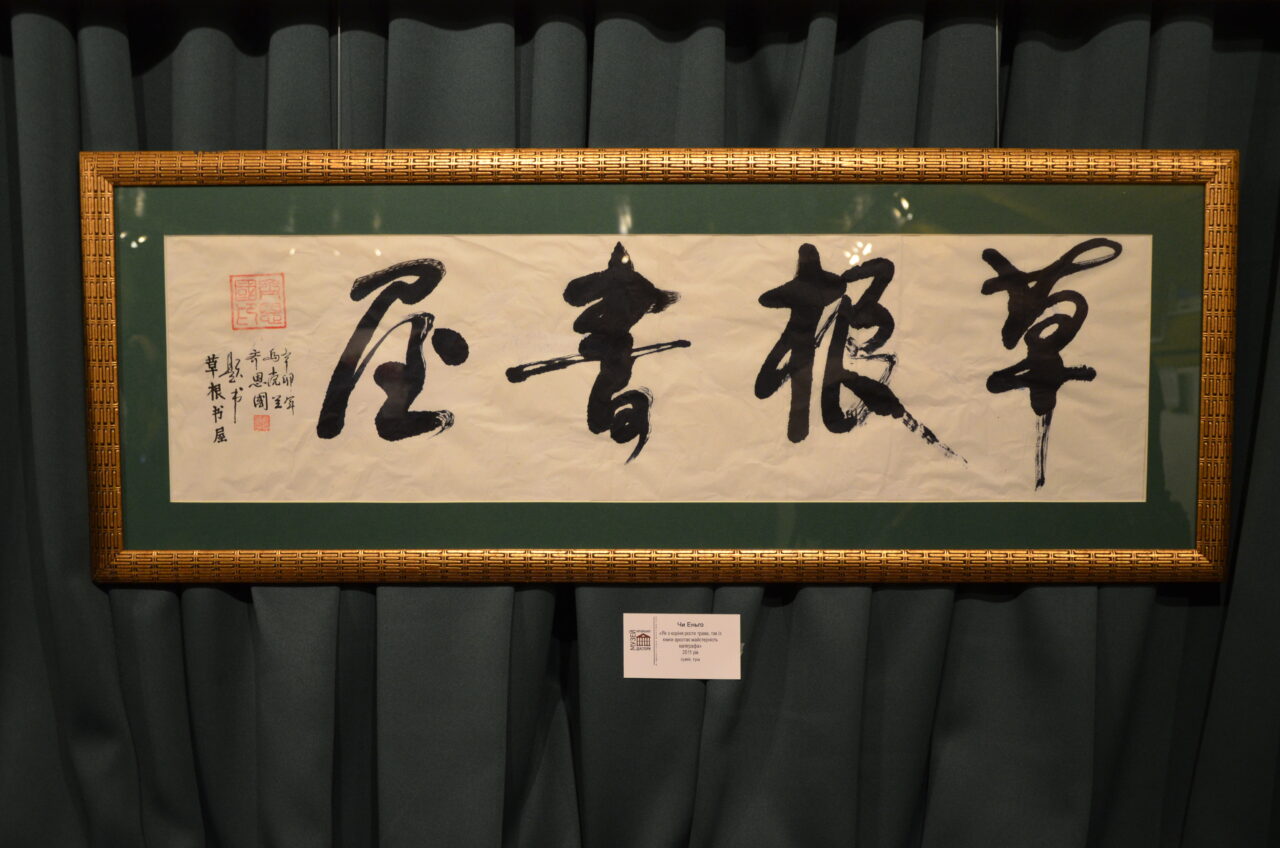 草根書屋
辛卯年
齐思國
題书
草根书屋
Чи Еньго
«Як з коріня росте трава, так із
книги зростає майстерність
каліграфа»
2011 рік
сувій, туш